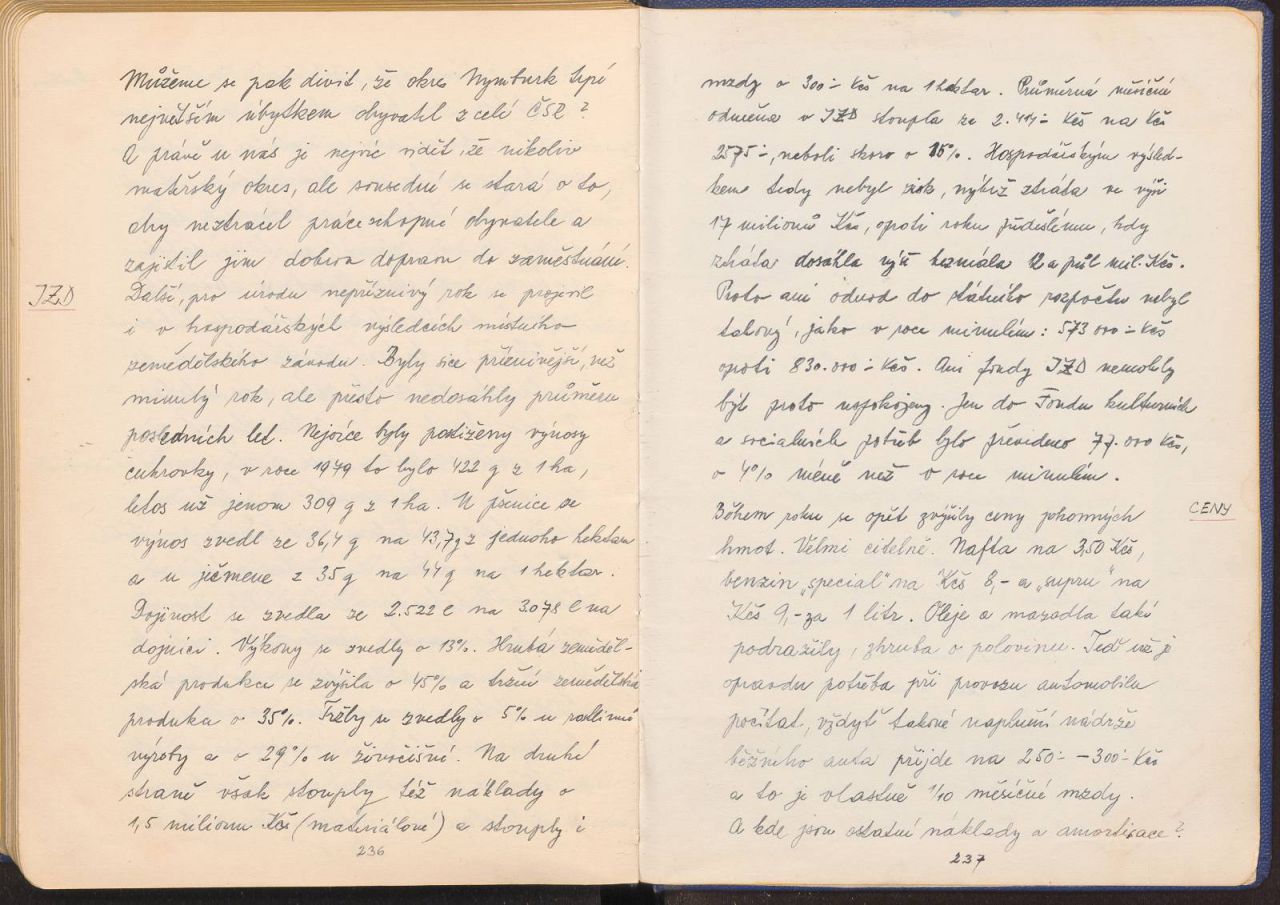 Můžeme se pak divit, že okres Nymburk trpí
největším úbytkem obyvatel z celé ČSR?
A právě u nás je nejvíc vidět, že nikoliv
mateřský okres, ale sousedné se stará o to,
aby neztrácel práceschopné obyvatele a
zajistil jim dobrou dopravu do zaměstnání.
JZD
Další, pro úrodu nepříznivý rok se projevil
i v hospodářských výsledcích místního
zemědělského závodu. Byly sice příznivější, než
minulý rok, ale přesto nedosáhly průměru
posledních let. Nejvíce byly postiženy výnosy
cukrovky, v roce 1979 to bylo 422 q z 1 ha,
letos už jenom 309 q z 1 ha. U pšenice se
výnos zvedl ze 36,4 q na 43,7 q z jednoho hektaru
a u ječmene z 35 q na 44 q na 1 hektar.
Dojivost se zvedla ze 2.522 l na 3078 l na
dojnici. Výkony se zvedly o 13%. Hrubá zeměděl-
ská produkce se zvýšila o 45% a tržní zemědělská
produkce o 35%. Tržby se zvedly o 5% u rostlinné
výroby a o 29% u živočišné. Na druhé
straně však stouply též náklady o
1,5 milionu Kčs (materiálové) a stouply i
236
mzdy o 300.- Kčs na 1 hektar. Průměrná měsíčná
odměna v JZD stoupla ze 2.414.- Kčs na Kčs
2575.-, neboli skoro o 16%. Hospodářským výsled-
kem tedy nebyl zisk, nýbrž ztráta ve výši
17 milionů Kčs, oproti roku předešlému, kdy
ztráta dosáhla výše bezmála 12 a půl mil. Kčs.
Proto ani odvod do státního rozpočtu nebyl
takový, jako v roce minulém: 573 000.- Kčs
oproti 830.000.- Kčs. Ani fondy JZD nemohly
být proto uspokojeny. Jen do Fondu kulturních
a sociálních potřeb bylo převedeno 77.000 Kčs,
o 4% méně než v roce minulém.
CENY
Během roku se opět zvýšily ceny pohonných
hmot. Velmi citelně. Nafta na 3,50 Kčs,
benzin „special" na Kčs 8,- a „supru" na
Kčs 9,- za 1 litr. Oleje a mazadla také
podražily, zhruba o polovinu. Teď už je
opravdu potřeba při provozu automobilu
počítat, vždyť takové naplnění nádrže
běžného auta přijde na 250.- – 300.- Kčs
a to je vlastně 1/10 měsíčné mzdy.
A kde jsou ostatní náklady a amortisace?
237